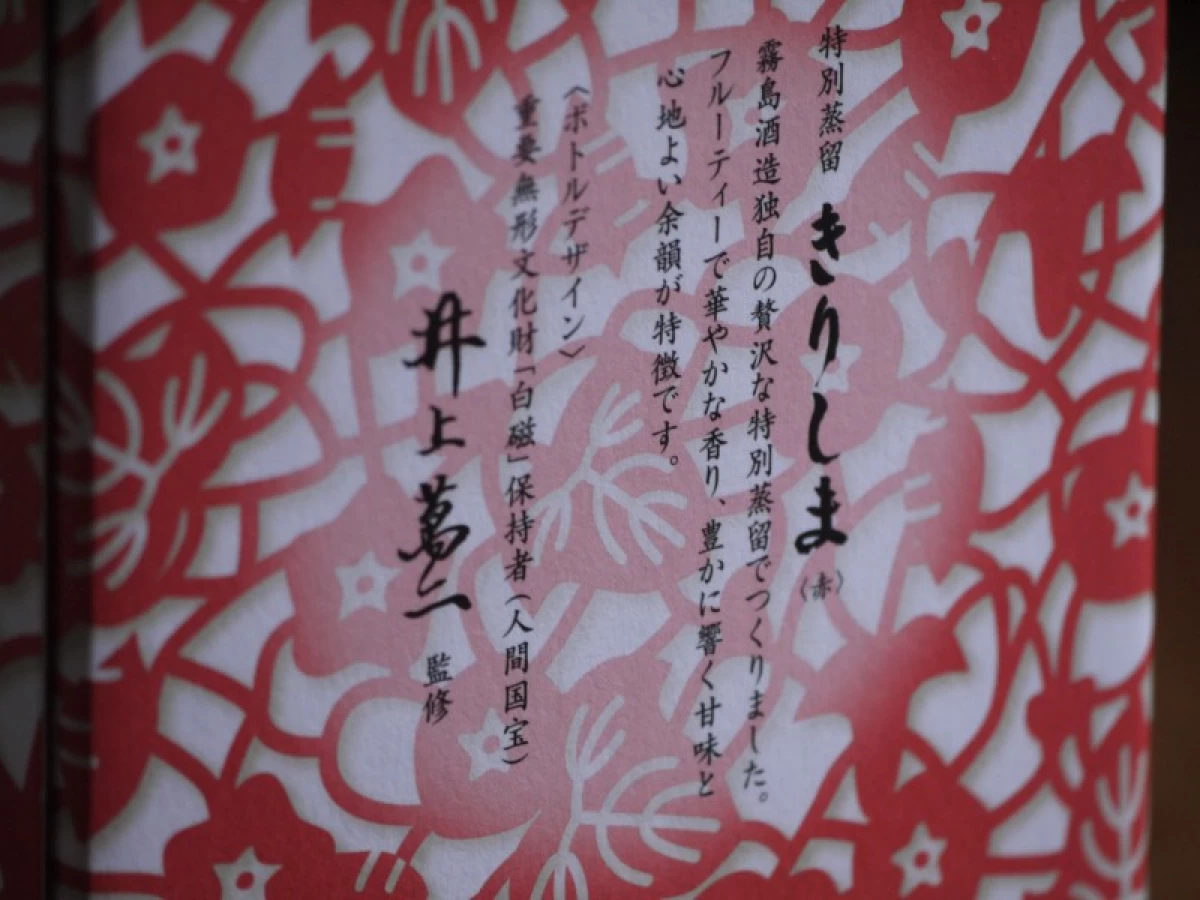 特別蒸留 きりしま（赤）
霧島酒造独自の贅沢な特別蒸留でつくりました。
フルーティーで華やかな香り、豊かに響く甘味と
心地よい余韻が特徴です。
〈ボトルデザイン〉
重要無形文化財「白磁」保持者（人間国宝）
井上萬二 監修